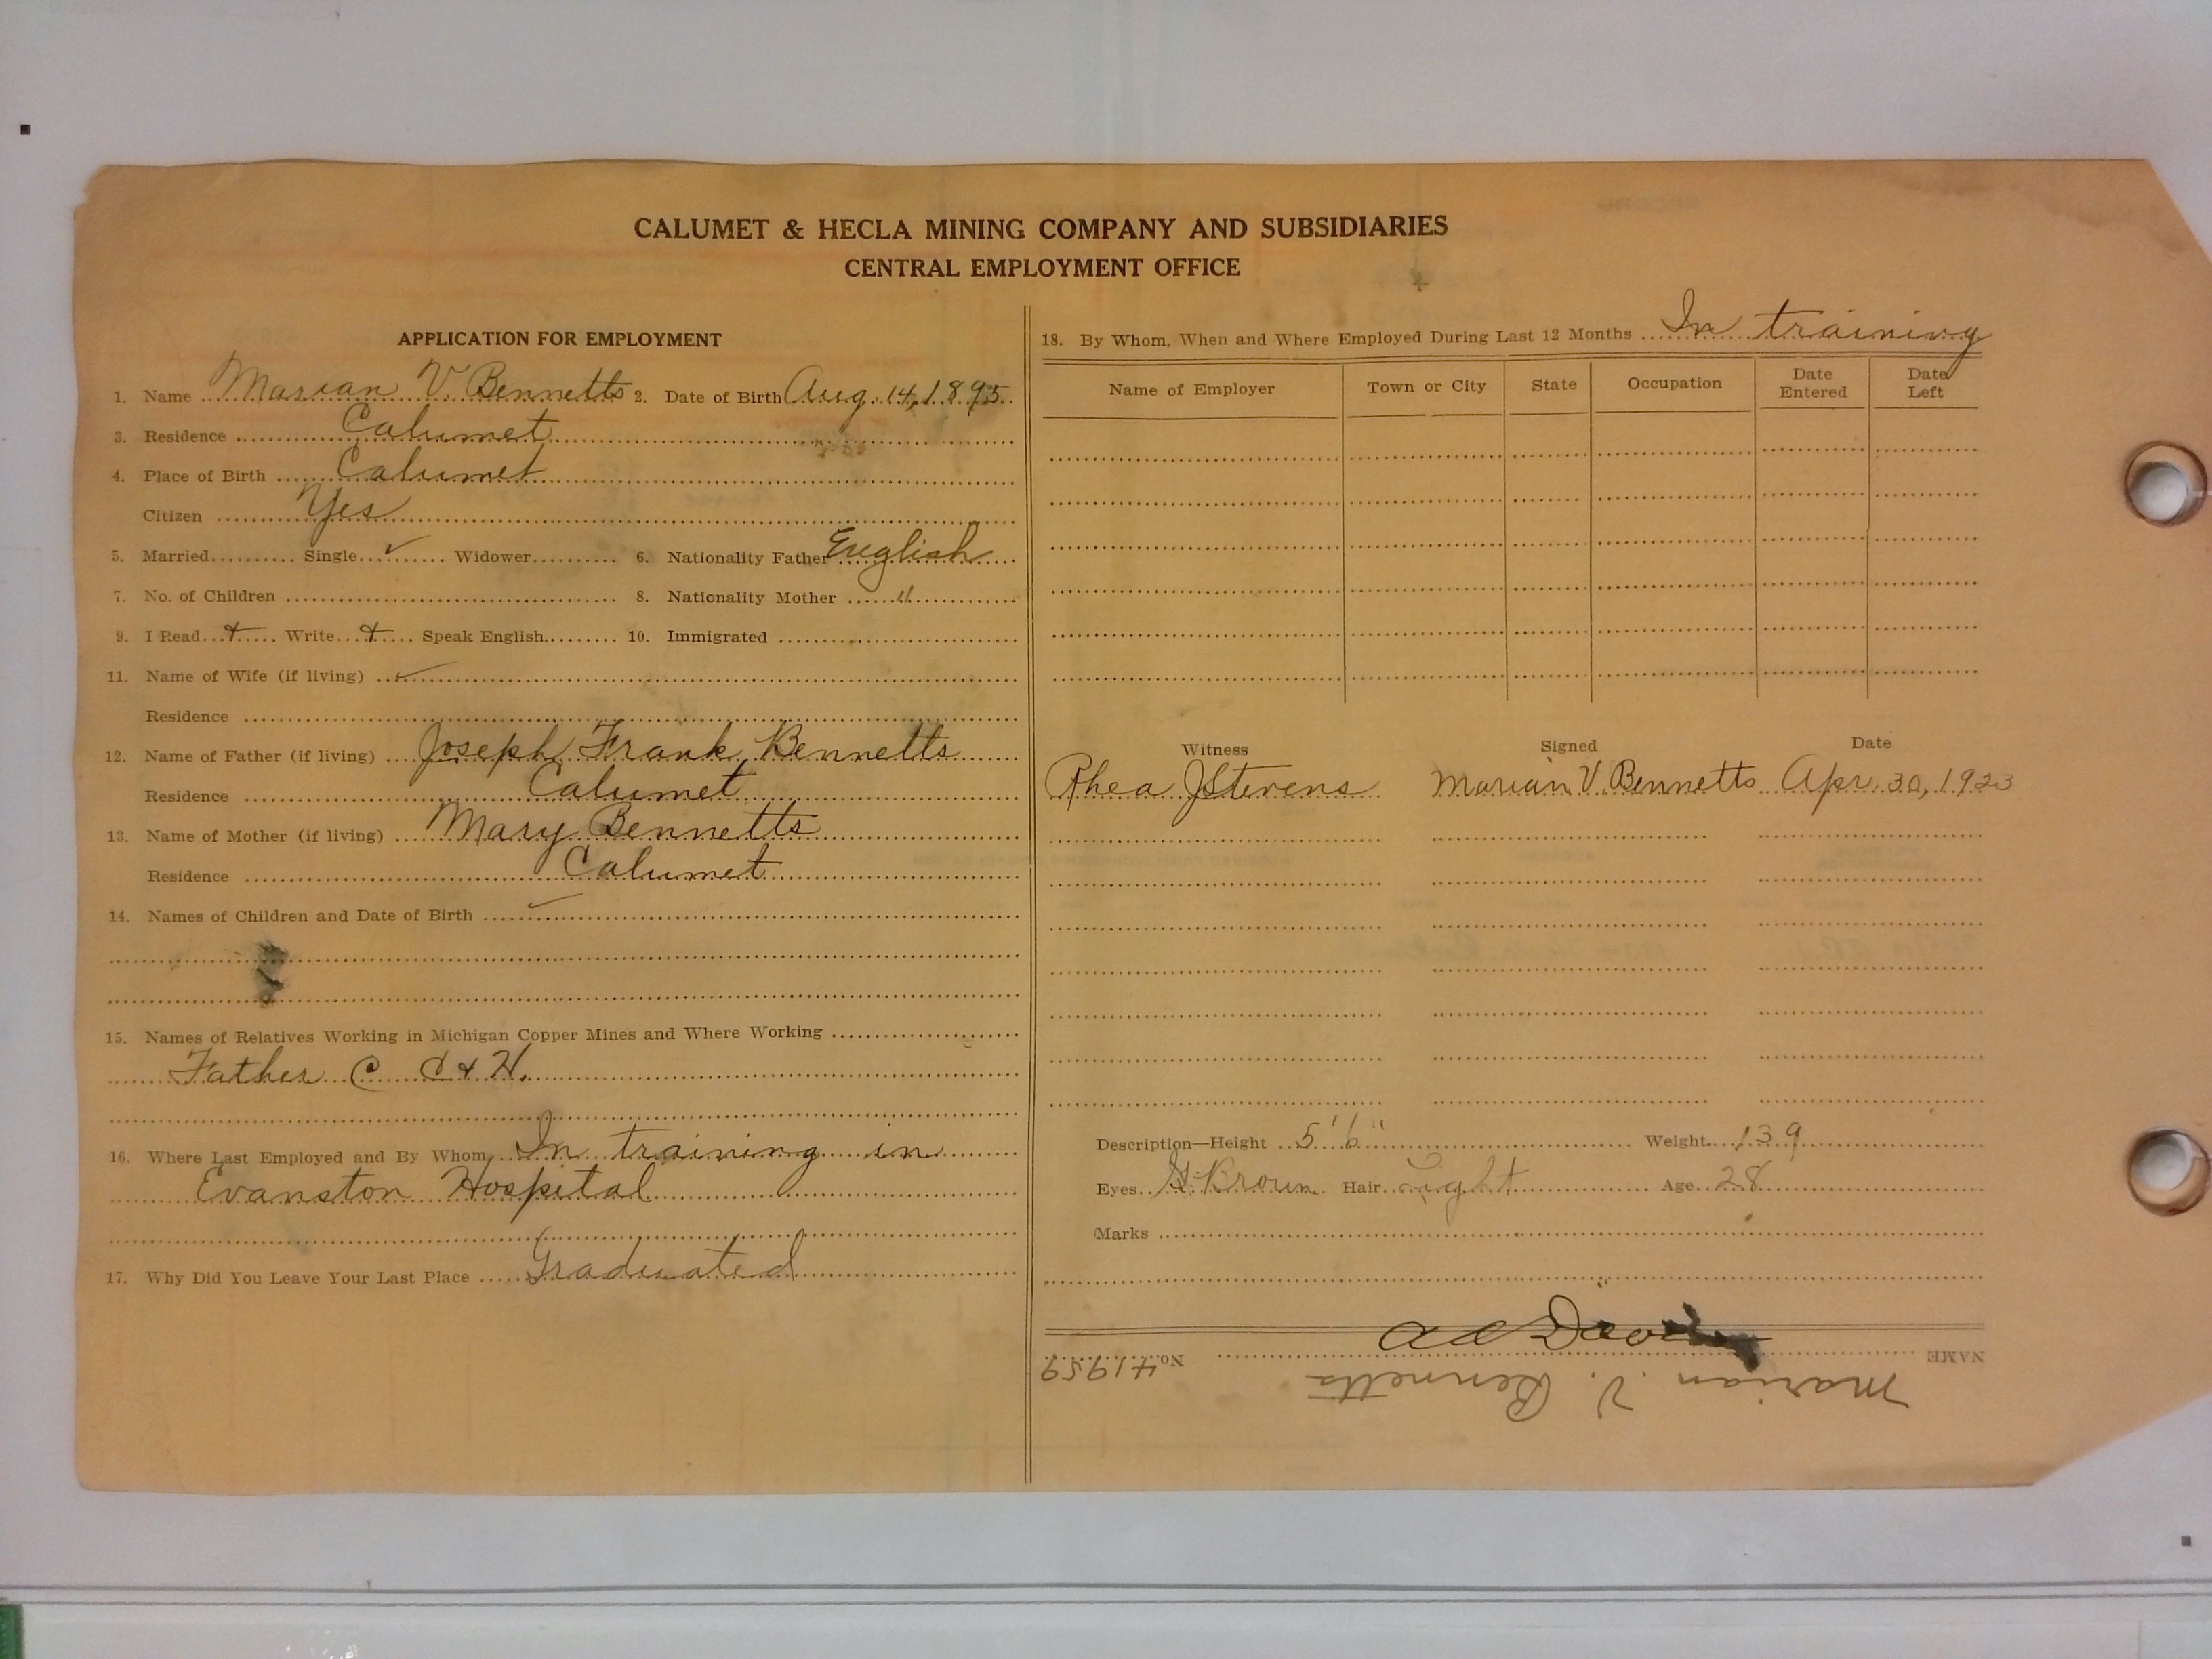 CALUMET & HECLA MINING COMPANY AND SUBSIDIARIES
CENTRAL EMPLOYMENT OFFICE
APPLICATION FOR EMPLOYMENT
1. Name Marian V. Bennetts 2. Date of Birth Aug. 14, 1895
3. Residence Calumet
4. Place of Birth Calumet
Citizen Yes
5. Married Single ✓ Widower 6. Nationality Father English
7. No. of Children 8. Nationality Mother "
9. I Read + Write + Speak English 10. Immigrated
11. Name of Wife (if living) ✓
Residence
12. Name of Father (if living) Joseph Frank Bennetts
Residence Calumet
13. Name of Mother (if living) Mary Bennetts
Residence Calumet
14. Names of Children and Date of Birth
15. Names of Relatives Working in Michigan Copper Mines and Where Working
Father C C & H.
16. Where Last Employed and By Whom In training in
Evanston Hospital
17. Why Did You Leave Your Last Place Graduated
18. By Whom, When and Where Employed During Last 12 Months In training
Name of Employer Town or City State Occupation Date Entered Date Left
Witness Signed Date
Rhea J Stevens Marian V. Bennetts Apr. 30, 1923
Description—Height 5' 6" Weight 139
Eyes Brown Hair Light Age 28
Marks
NAME No. 41959
Marian V. Bennetts